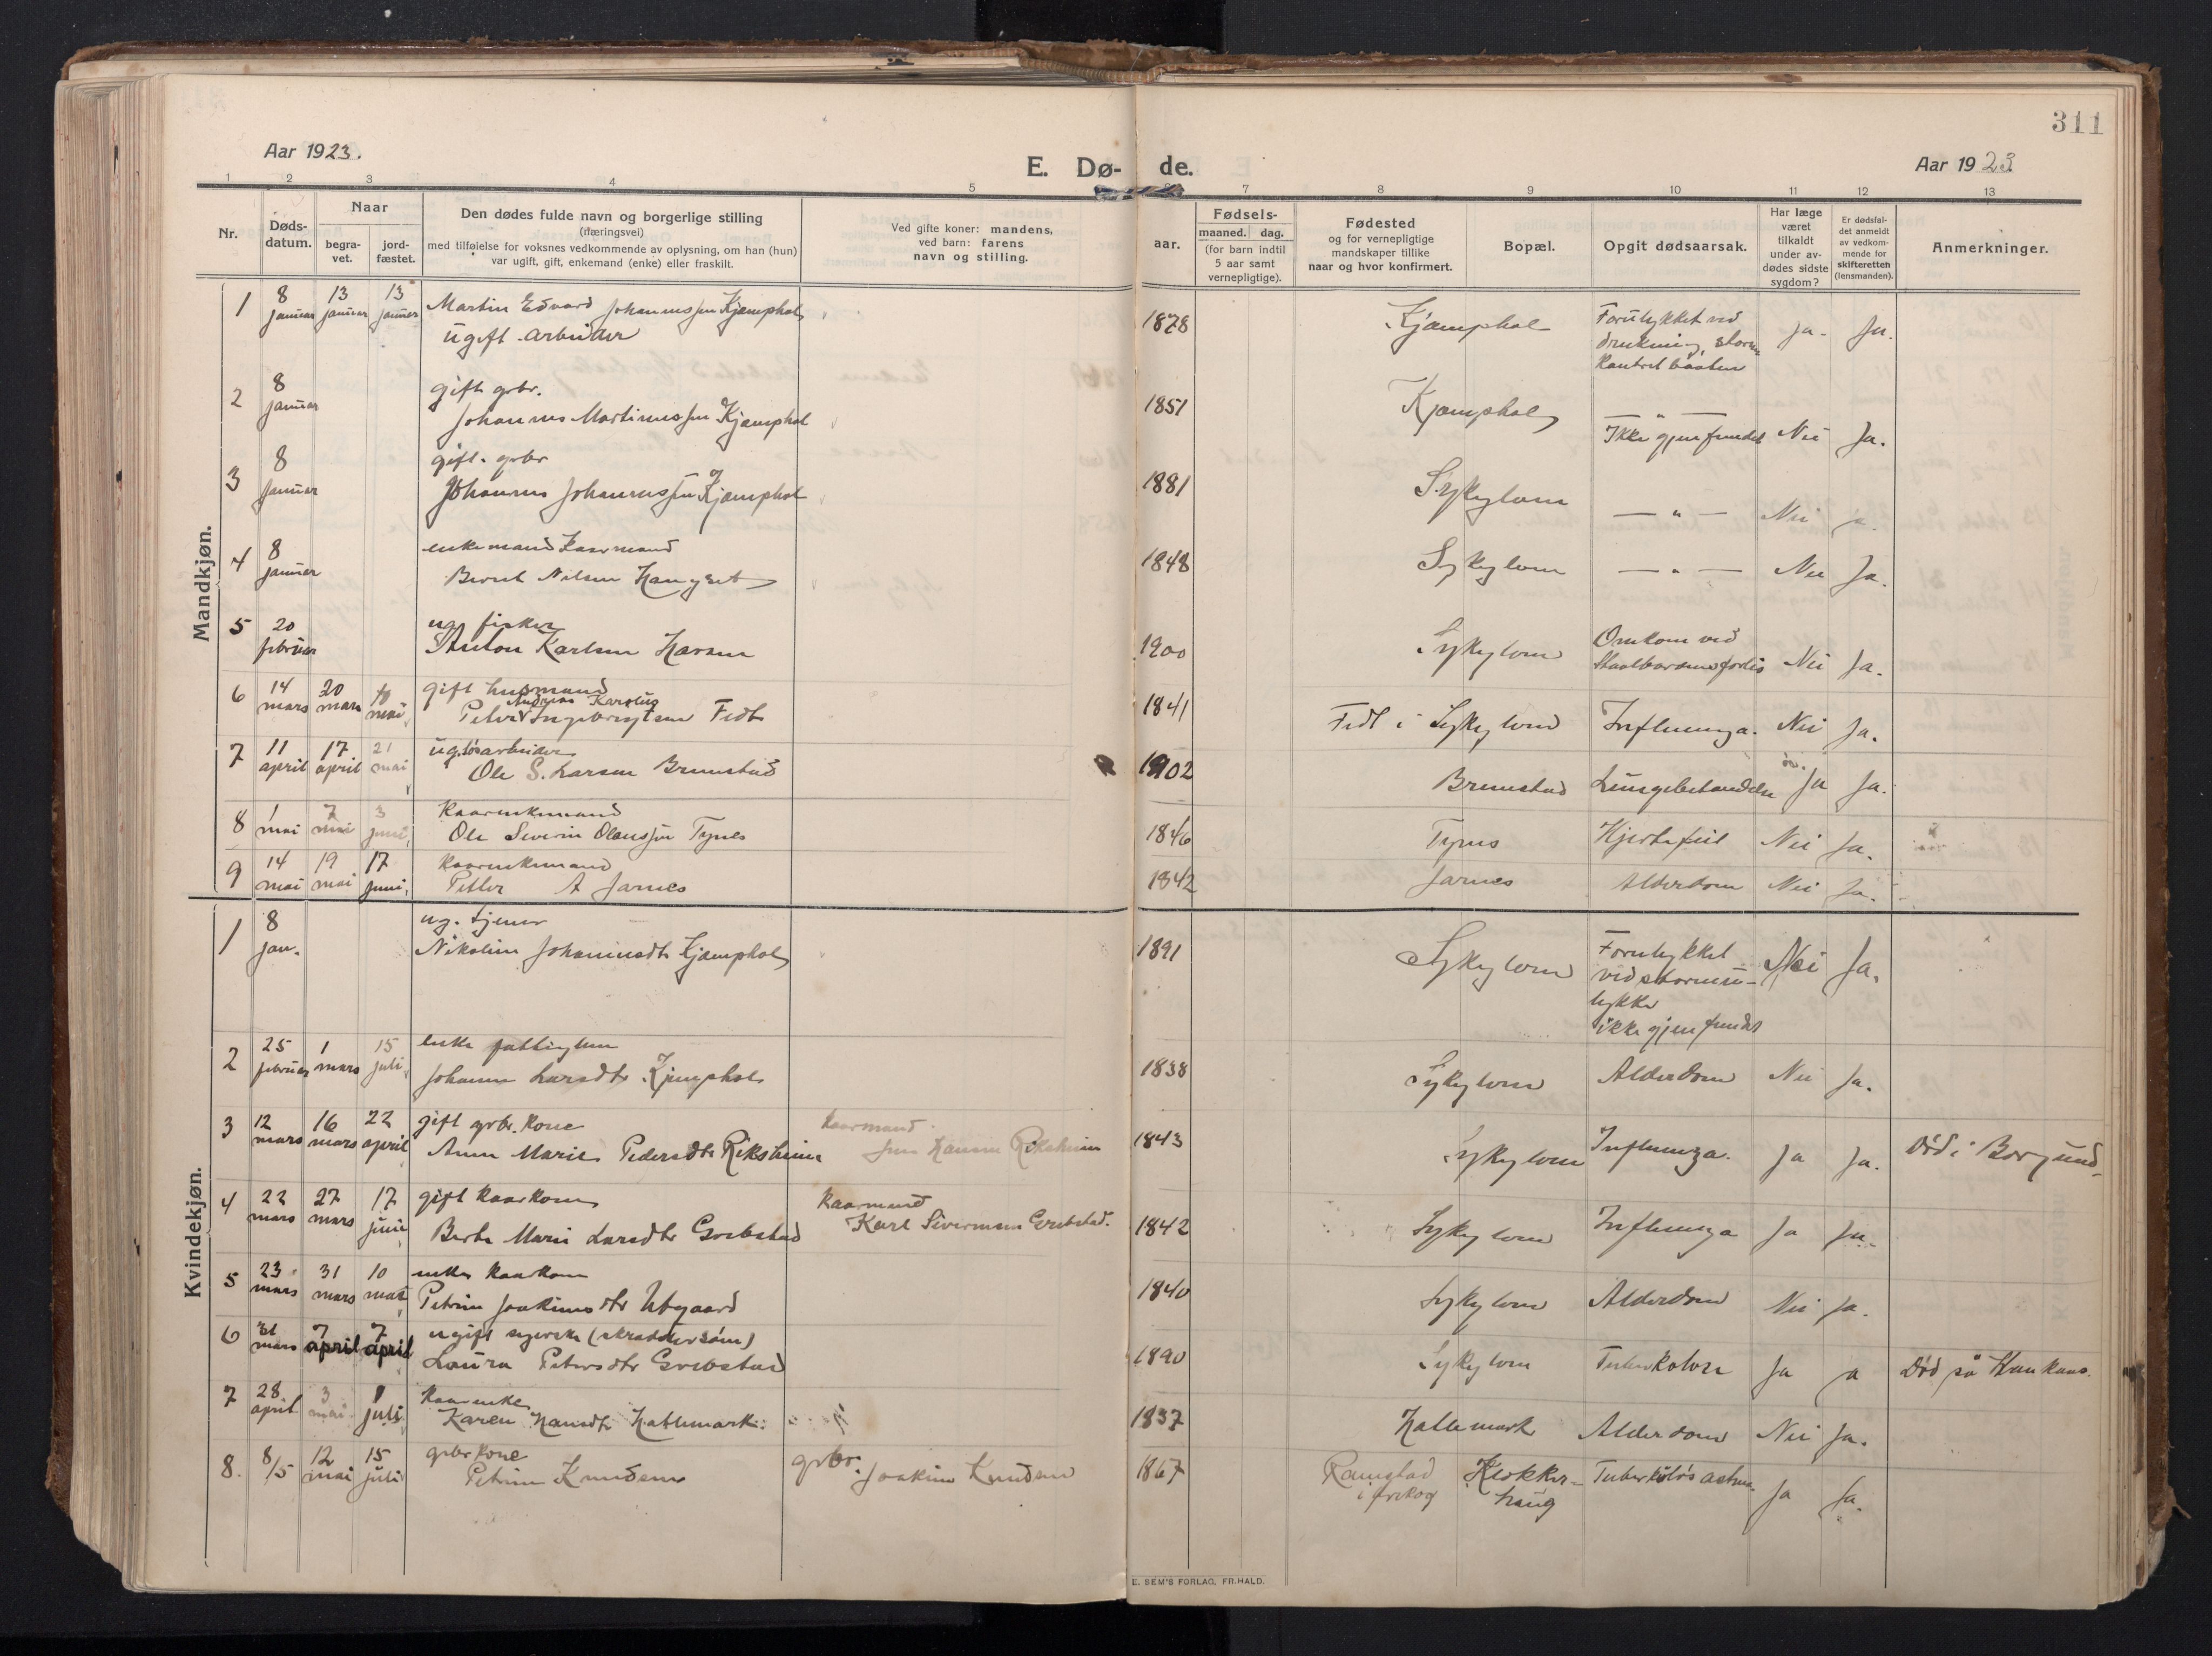 311
Aar 1923.
E. Dø- de.
Aar 1923
1 2 3 4 5 7 8 9 10 11 12 13
Nr.
Døds-
datum.
Naar
begra-
vet.
jord-
fæstet.
Den dødes fulde navn og borgerlige stilling
(næringsvei)
med tilføielse for voksnes vedkommende av oplysning, om han (hun)
var ugift, gift, enkemand (enke) eller fraskilt.
Ved gifte koner: mandens,
ved barn: farens
navn og stilling.
aar.
Fødsels-
maaned. dag.
(for barn indtil
5 aar samt
vernepligtige).
Fødested
og for vernepligtige
mandskaper tillike
naar og hvor konfirmert.
Bopæl.
Opgit dødsaarsak.
Har læge
været
tilkaldt
under av-
dødes sidste
sygdom?
Er dødsfal-
det anmeldt
av vedkom-
mende for
skifteretten
(lensmanden).
Anmerkninger.
Mandkjøn.
1 8 januar 13 januar 13 januar Martin Edvard Johannessen Kjæmphol 1878 Kjæmphol Forulykket ved Ja- Ja.
ugift arbeider drukning, storm
kantret baaten
2 8 januar gift grbr. 1851 Kjæmphol — " —
Johannes Martinussen Kjæmphol Ikke gjenfundet Nei Ja.
3 8 januar gift. grbr 1881 Sykylven — " — Nei ja.
Johannes Johannessen Kjæmphol
4 8 januar enkemand kaarmand 1848 Sykylven — " — Nei Ja.
Bernt Nilsen
5 20 februar ug. fisker 1900 Sykylven Omkom ved Nei Ja.
Anton Karlsen
6 14 mars 20 mars 10 mai gift husmand 1841 Fedt i Sykylven Influenza. Nei Ja.
Andreas Karolus
Peter Ingebrigtsen Fedt
7 11 april 17 april 21 mai ug. løsarbeider 1902 Brunstad Lungebetændelse Ja Ja.
Ole S. Larsen Brunstad
8 1 mai 7 mai 3 juni, kaarenkemand 1846 Tynes Hjertefeil Nei Ja.
Ole Severin Olaussen Tynes
9 14 mai 19 mai 17 juni, kaarenkemand 1842 Jarnes Alderdom Nei Ja.
Petter A Jarnes
Kvindekjøn.
1 8 jan. ug. tjener 1891 Sykylven Forulykket Nei Ja.
Nikoline Johannesdtr Kjæmphol ved stormu-
lykke
ikke gjenfundet
2 25 februar 1 mars 15 juli enke fattiglem 1838 Sykylven Alderdom Nei Ja.
Johanne Larsdtr Kjemphol
3 12 mars 16 mars 22 april gift grbr. kone kaarmand. 1843 Sykylven Influenza. Ja Ja. Død i Borgund.
Anne Marie Pedersdtr Riksheim Jens Hansen Riksheim
4 22 mars 27 mars 17 juni gift kaarkone kaarmand 1842 Sykylven Influenza Ja Ja.
Berte Marie Larsdtr Grebstad Karl Sivertsen Grebstad.
5 23 mars 31 mars 10 mai enke kaarkone 1840 Sykylven Alderdom Nei Ja.
Petrine Joakimsdtr Utgaard
6 31 mars 7 april 7 april ugift syerske (skræddersøm) 1890 Sykylven Tuberkolose Ja a Død på Haukaas.
Laura Petersdtr Grebstad
7 28 april 3 mai 1 juli kaarenke 1837 Hattemark Alderdom Nei Ja.
Karen Hansdtr Hattemark
8. 8/5 12 mai 15 juli grbr kone grbr. 1867 Ramstad Klokker- Tuberkuløs astma Ja Ja.
Petrine Knudsen Joakim Knudsen haug
E. SEM'S FORLAG, FR.HALD.